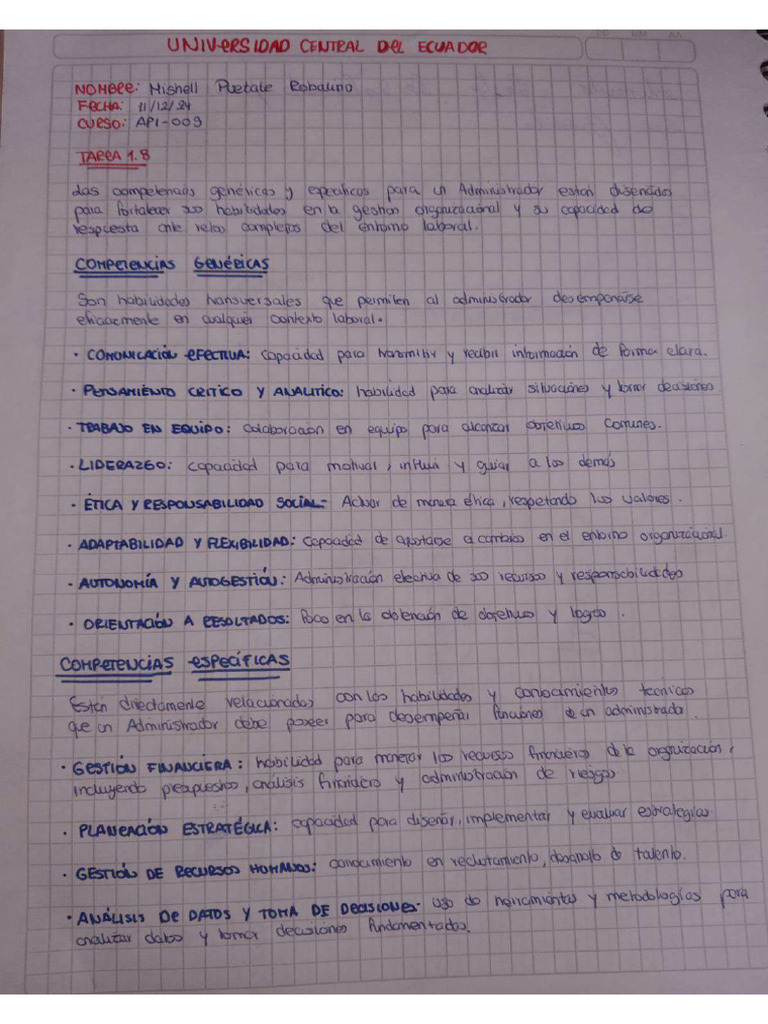 UNIVERSIDAD CENTRAL DEL ECUADOR
NOMBRE: Mishell Puetate Robalino
FECHA: 11/12/24
CURSO: AP1-009
TAREA 1.8
Las competencias genéricas y especificas para un Administrador estan diseñadas
para fortalecer sus habilidades en la gestion organizacional y su capacidad de
respuesta ante retos complejos del entorno laboral.
COMPETENCIAS GENÉRICAS
Son habilidades transversales que permiten al administrador desempeñarse
eficazmente en cualquier contexto laboral.
• COMUNICACIÓN EFECTIVA: Capacidad para transmitir y recibir información de forma clara.
• PENSAMIENTO CRITICO Y ANALITICO: habilidad para analizar situaciones y tomar decisiones
• TRABAJO EN EQUIPO: Colaboracion en equipo para alcanzar objetivos comunes.
• LIDERAZGO: capacidad para motivar, influir y guiar a los demás
• ÉTICA Y RESPONSABILIDAD SOCIAL- Actuar de manera ética, respetando los valores.
• ADAPTABILIDAD Y FLEXIBILIDAD: Capacidad de ajustarse a cambios en el entorno organizacional.
• AUTONOMÍA Y AUTOGESTIÓN: Administración efectiva de sus recursos y responsabilidades
• ORIENTACIÓN A RESULTADOS: Foco en la obtención de objetivos y logros.
COMPETENCIAS ESPECÍFICAS
Estan directamente relacionadas con las habilidades y conocimientos tecnicos
que un Administrador debe poseer para desempeñar funciones de un administrador
• GESTIÓN FINANCIERA: habilidad para manejar los recursos financieros de la organización,
incluyendo presupuestos, análisis financiero y administración de riesgos
• PLANEACIÓN ESTRATÉGICA: capacidad para diseñar, implementar y evaluar estrategias
• GESTIÓN DE RECURSOS HUMANOS: conocimiento en reclutamiento, desarrollo de talento.
• ANÁLISIS DE DATOS Y TOMA DE DECISIONES- uso de herramientas y metodologías para
analizar datos y tomar decisiones fundamentadas.